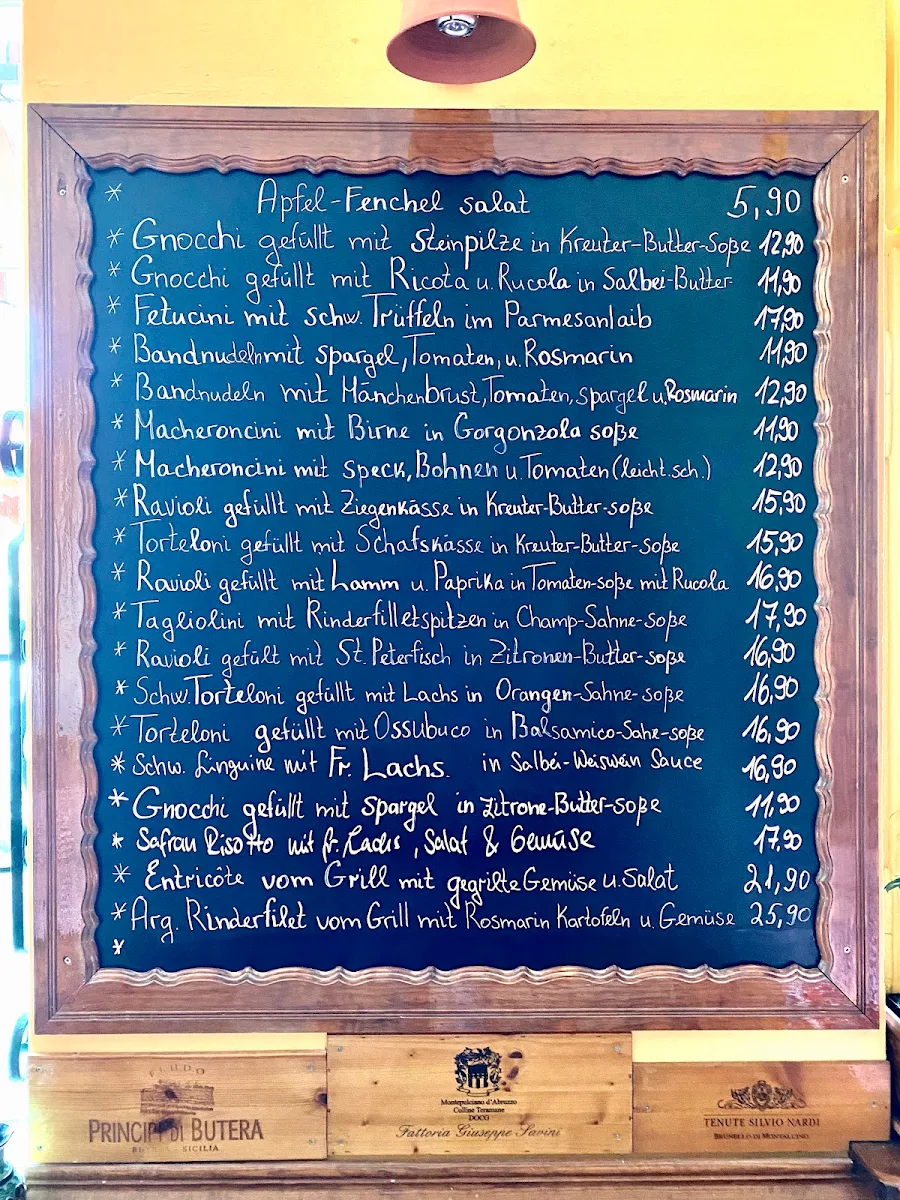 * Apfel-Fenchel salat 5,90
* Gnocchi gefüllt mit Steinpilze in Kreuter-Butter-Soße 12,90
* Gnocchi gefüllt mit Ricota u. Rucola in Salbei-Butter 11,90
* Fetucini mit schw. Trüffeln im Parmesanlaib 17,90
* Bandnudeln mit Spargel, Tomaten, u. Rosmarin 11,90
* Bandnudeln mit Hänchenbrust, Tomaten, Spargel u. Rosmarin 12,90
* Macheroncini mit Birne in Gorgonzola soße 11,90
* Macheroncini mit Speck, Bohnen u. Tomaten (leicht.sch.) 12,90
* Ravioli gefüllt mit Ziegenkässe in Kreuter-Butter-soße 15,90
* Torteloni gefüllt mit Schafskässe in Kreuter-Butter-soße 15,90
* Ravioli gefüllt mit Lamm u. Paprika in Tomaten-soße mit Rucola 16,90
* Tagliolini mit Rinderfilletspitzen in Champ-Sahne-soße 17,90
* Ravioli gefült mit St. Peterfisch in Zitronen-Butter-soße 16,90
* Schw. Torteloni gefüllt mit Lachs in Orangen-Sahne-soße 16,90
* Torteloni gefüllt mit Ossubuco in Balsamico-Sahe-soße 16,90
* Schw. Linguine mit Fr. Lachs. in Salbei-Weiswein Sauce 16,90
* Gnocchi gefüllt mit Spargel in Zitrone-Butter-soße 11,90
* Safran Risotto mit fr. Lachs, Salat & Gemüse 17.90
* Entricôte vom Grill mit gegrilte Gemüse u. Salat 21,90
* Arg. Rinderfilet vom Grill mit Rosmarin Kartofeln u. Gemüse 25,90
*
FEUDO
PRINCIPI DI BUTERA
BUTERA - SICILIA
Montepulciano d'Abruzzo
Colline Teramane
DOCG
Fattoria Giuseppe Savini
TENUTE SILVIO NARDI
BRUNELLO DI MONTALCINO